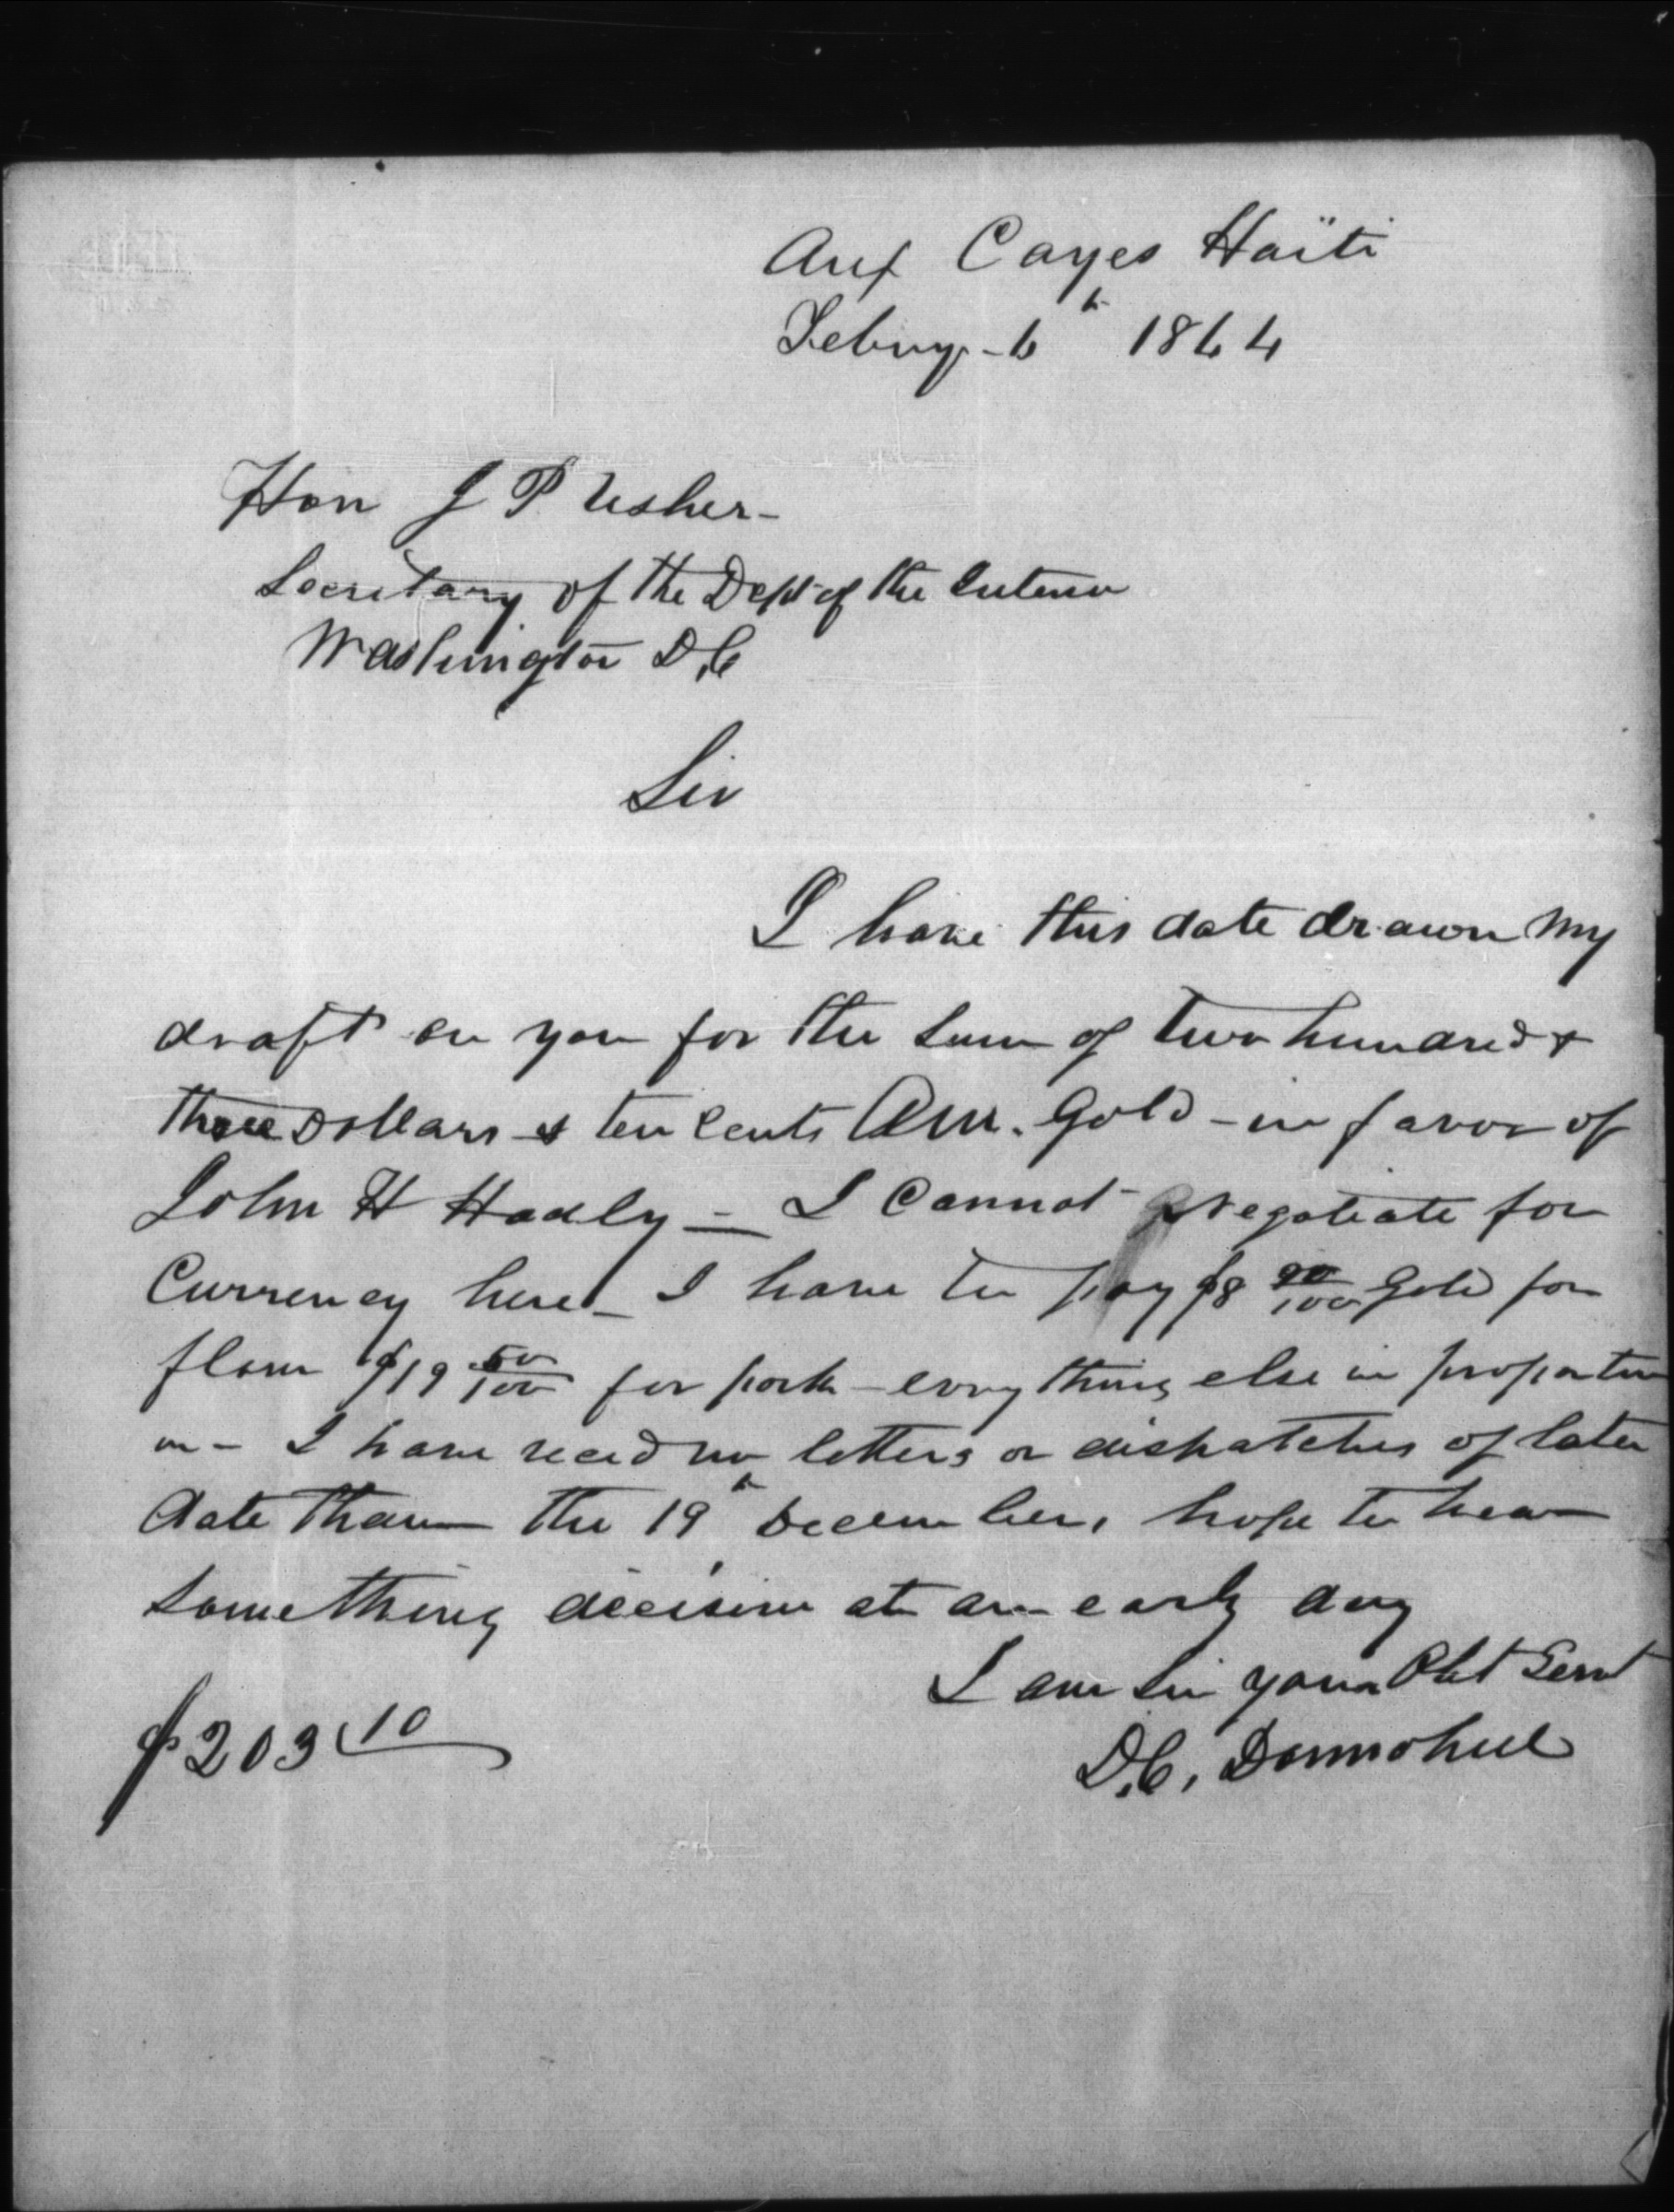 Aux Cayes Haïti
Febuy - 6th 1864
Hon J P Usher -
Secretary of the Dept of the Interior
Washington D.C
Sir
I have this date drawn my
draft on you for the sum of two hundred &
three Dollars & ten cents Am. Gold - in favor of
John H Hadly - I cannot Negotiate for
Currency here - I have to pay $8 90/100 Gold for
flour $19 50/100 for pork - every thing else in proportion
- I have recd no letters or dispatches of later
date than the 19th December, hope to hear
something decisive at an early day
I am Sir your Obt Servt
D.C. Donnohue
$203 10